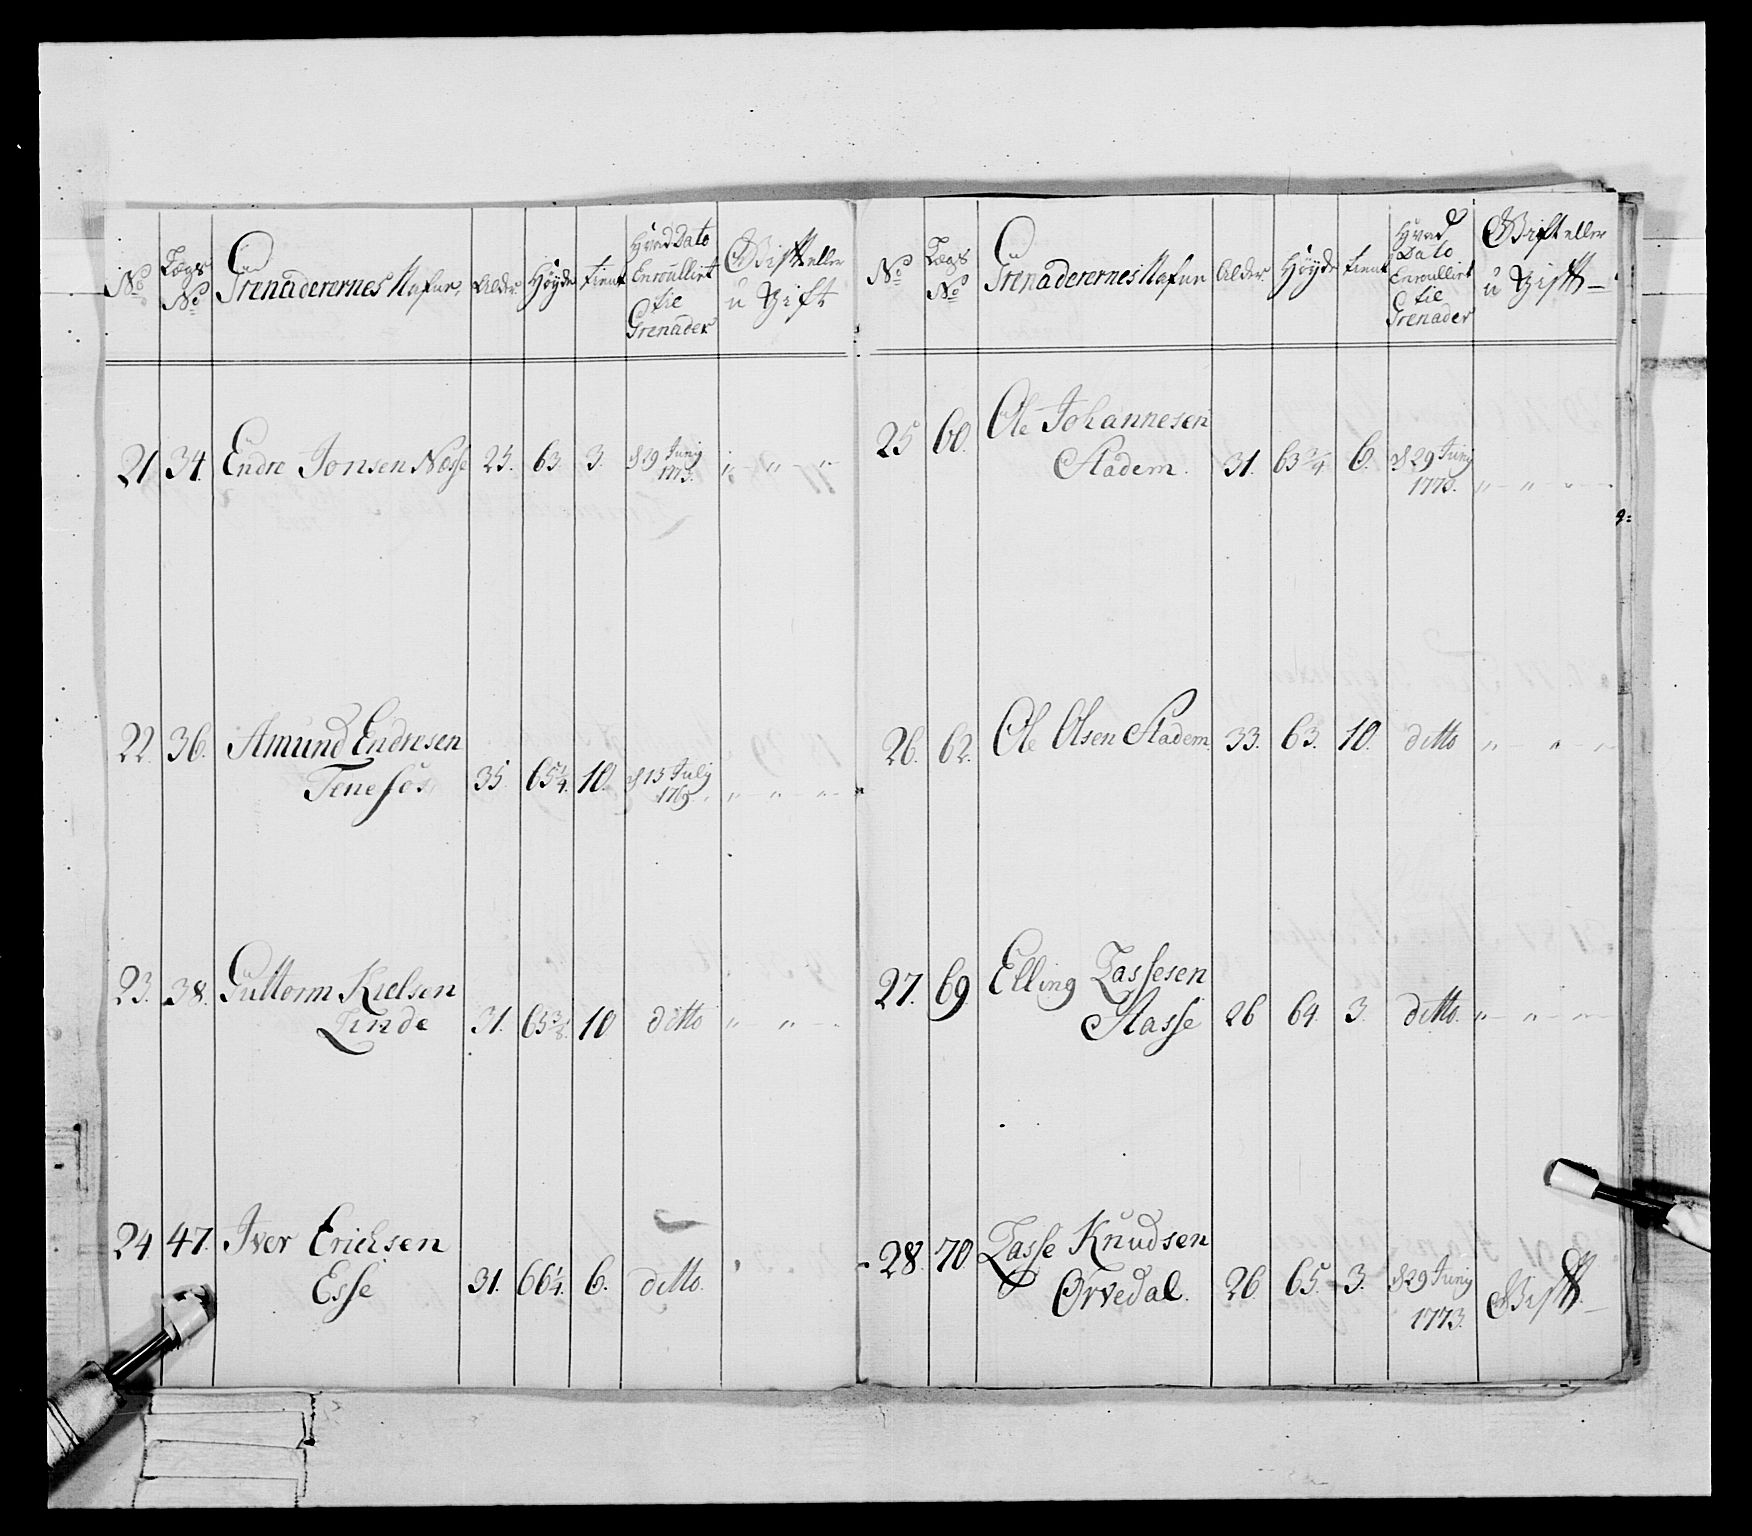 No
Lægs No
Grenaderernes Nafne,
Alder
Høyde
tient
Hvad Dato Enroullert til Grenader
Gift eller u Gift
21 34. Endre Jonsen Næsse 25. 63. 3. d 29 Junij 1773. " " "
22. 36. Amund Endresen
Tenefos 35. 65 1/4. 10. d 13 Julij 1769. " " "
23. 38. Guttorm Kielsen
Linde 31. 65 3/8. 10 ditto " " "
24. 47. Iver Erichsen
Esse 31. 66 1/4. 6. ditto.
No
Lægs No
Grenaderernes Nafne
Alder.
Høyde
tient
Hvad Dato Enroullert til Grenader
Gift eller u Gift
25 60. Ole Johannesen
Stadem. 31. 63 3/4. 6. d 29 Junij 1773. " " "
26. 62. Ole Olsen Stadem 33. 63. 10. ditto " " "
27. 69 Elling Lassesen
Stasse 26 64. 3. ditto. " " "
28. 70 Lasse Knudsen
Orvedal. 26 65. 3. d 29 Junij 1773. Gift.